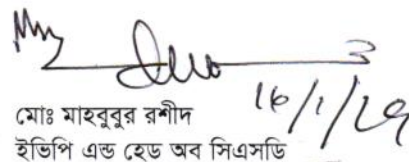 মোঃ মাহবুবুর রশীদ
ইভিপি এন্ড হেড অব সিএসডি